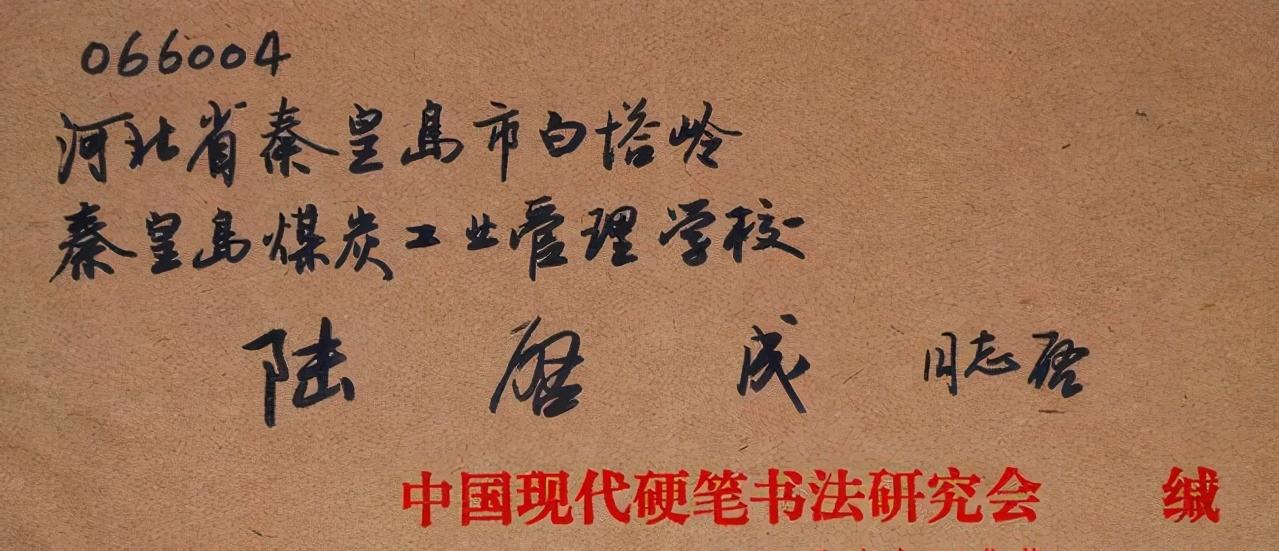 066004
河北省秦皇岛市白塔岭
秦皇岛煤炭工业管理学校
陆启成 同志启
中国现代硬笔书法研究会 缄